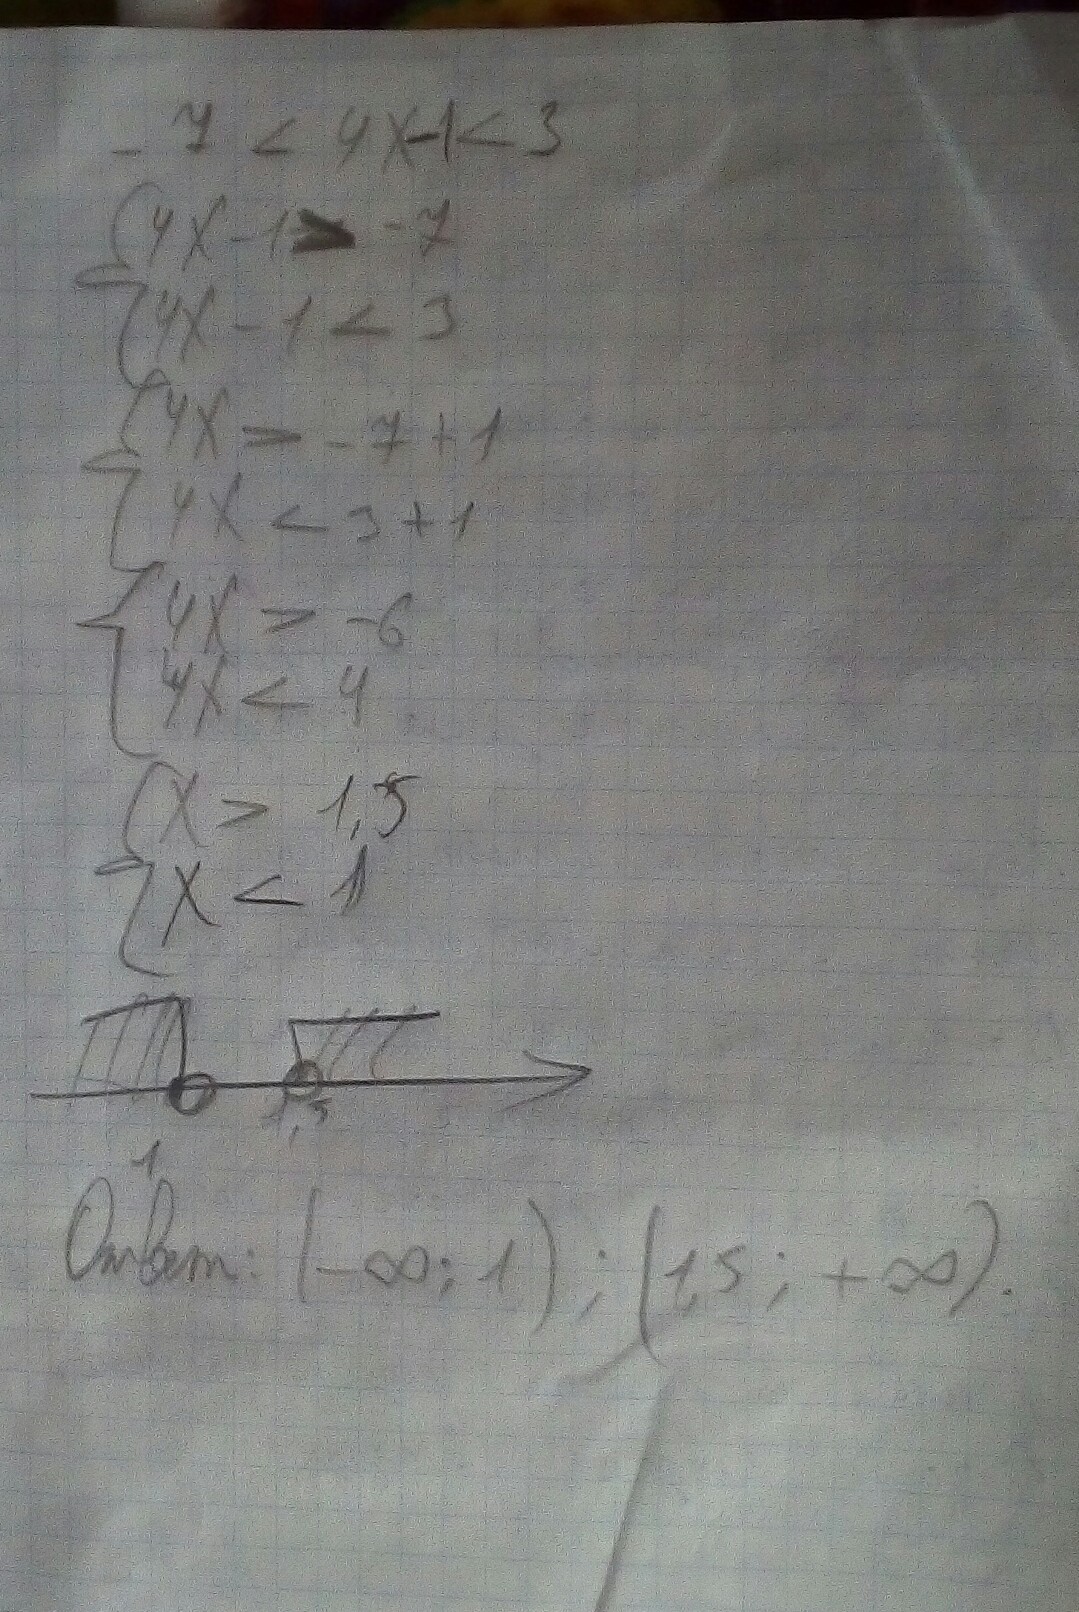 -7 < 4x-1 < 3
4x-1 > -7
4x-1 < 3
4x > -7+1
4x < 3+1
4x > -6
4x < 4
x > 1,5
x < 1
1 1,5
Ответ: (-∞; 1); (1,5; +∞).